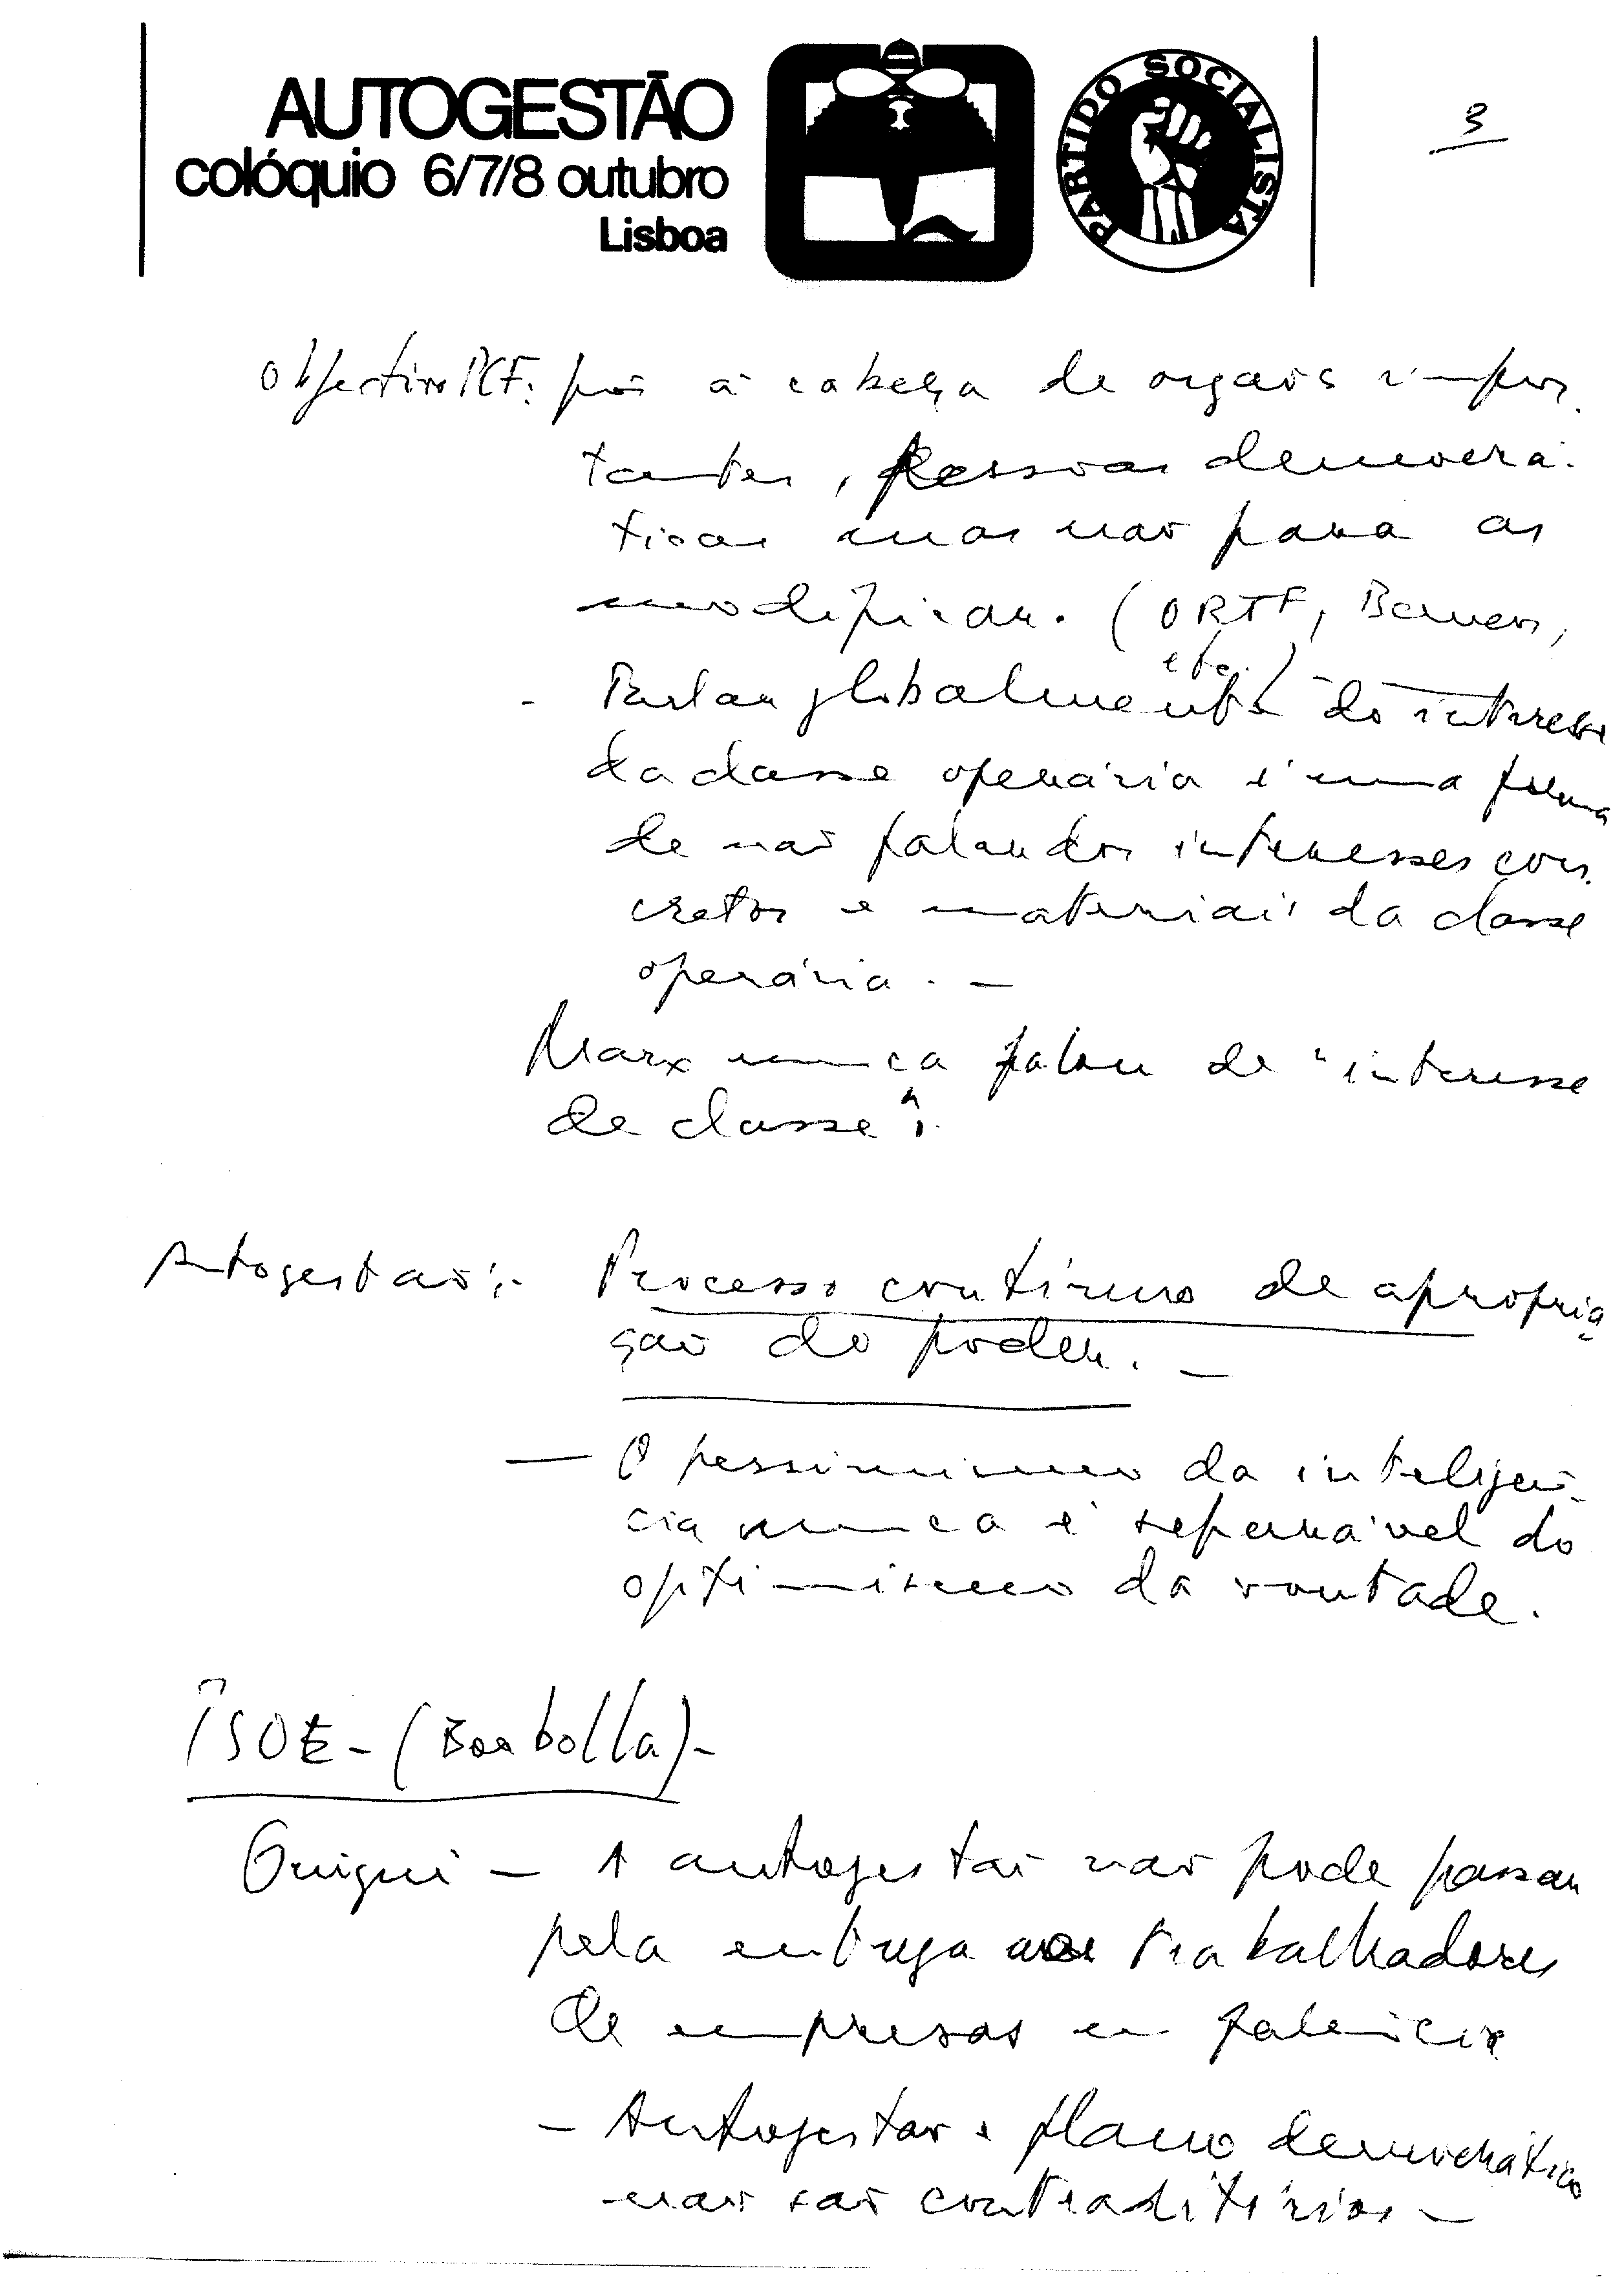 AUTOGESTÃO
colóquio 6/7/8 outubro
Lisboa
PARTIDO SOCIALISTA
3
Objectivo PCF: pôr à cabeça de orgãos impor
tantes, pessoas democrá-
ticas mas não para as
modificar. (ORTF, Bancos,
etc.)
- Falar globalmente do interesse
da classe operária é uma forma
de não falar dos interesses con-
cretos e materiais da classe
operária. —
Marx nunca falou de "interesse
de classe".
Autogestão:- Processo contínuo de apropria
ção do poder. —
— O pessimismo da inteligên-
cia nunca é separável do
optimismo da vontade.
PSOE - (Borbolla) -
Guigui — A autogestão não pode passar
pela entrega aos trabalhadores
de empresas em falência
- Autogestão e plano democrático
não são contraditórios —